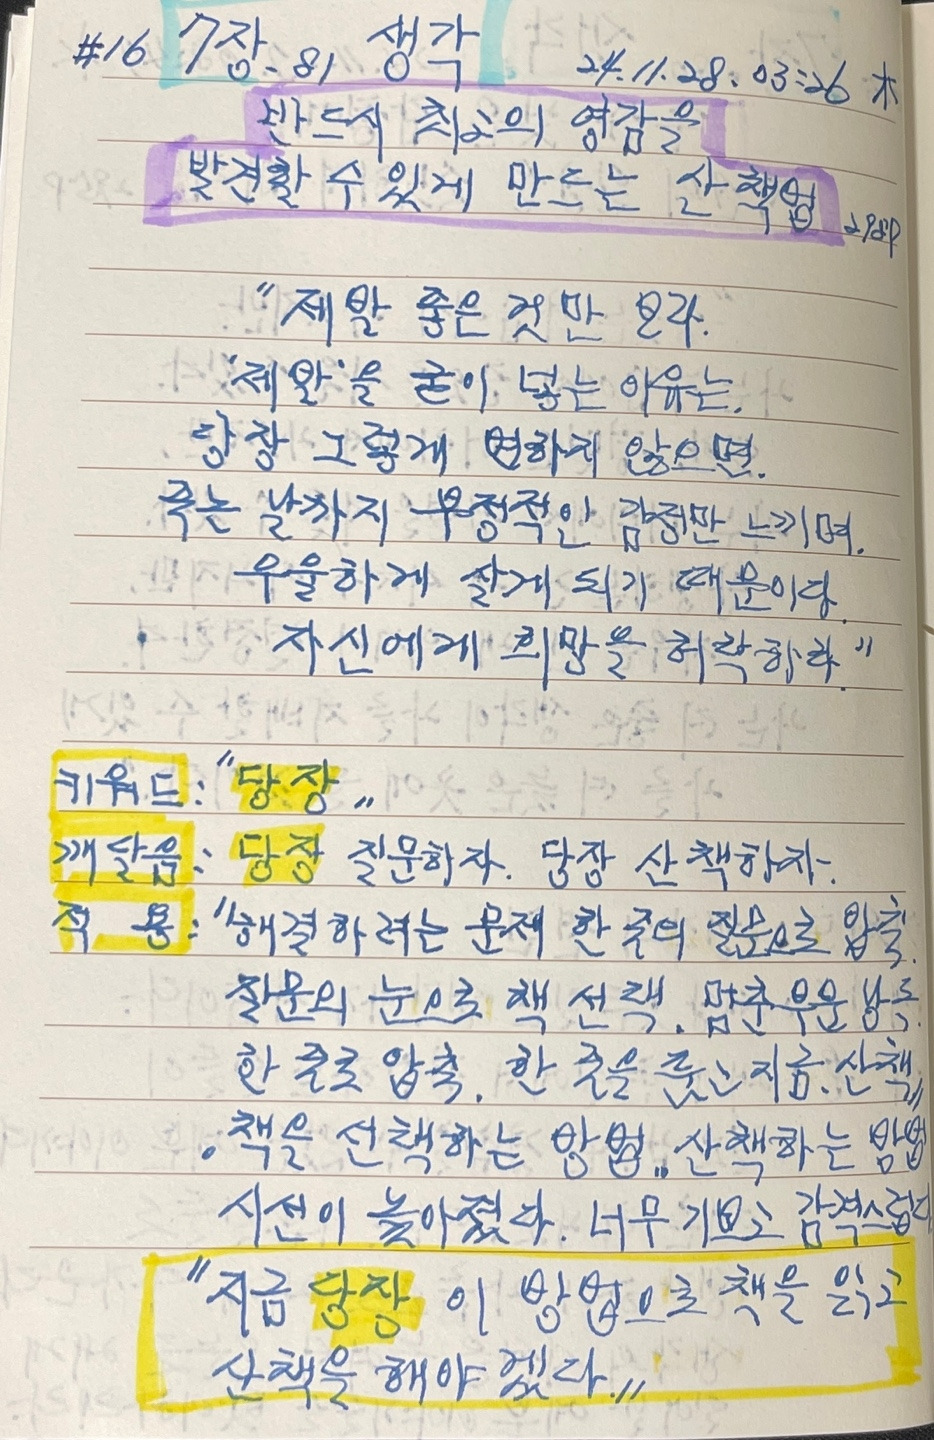 #16 7장-81 생각 24.11.28.03:26 木
반드시 최고의 영감을
발견할 수 있게 만드는 산책법 298P
"제발 좋은 것만 보라.
'제발'을 굳이 넣는 이유는,
당장 그렇게 변하지 않으면,
죽는 날까지 부정적인 감정만 느끼며,
우울하게 살게 되기 때문이다.
자신에게 희망을 허락하라."
키워드: "당장"
깨달음: 당장 질문하자. 당장 산책하자.
적 용: "해결하려는 문제 한 줄의 질문으로 압축.
질문의 눈으로 책 선택. 멈춘 부분 낭독.
한 줄로 압축. 한 줄을 품는 지금. 산책."
. 책을 선책하는 방법. 산책하는 방법
시선이 높아졌다. 너무 기쁘고 감격스럽다
"지금 당장 이 방법으로 책을 읽고
산책을 해야 겠다."